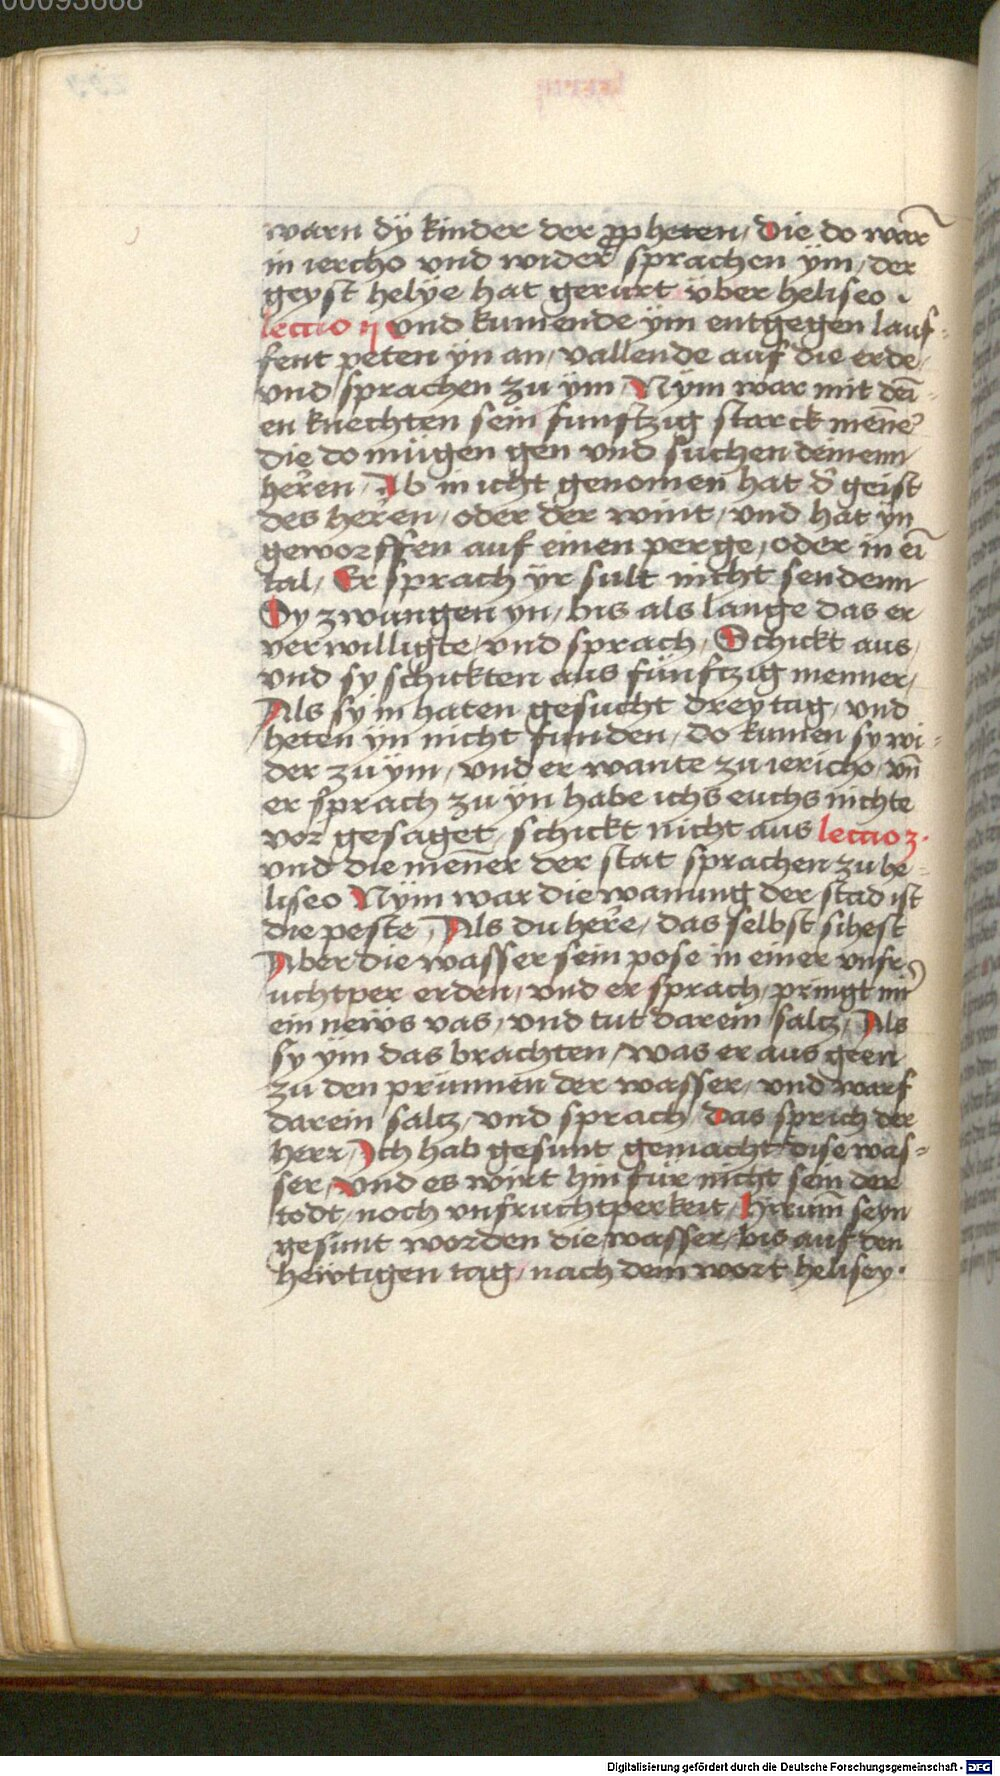 warn dÿ kinder der ꝓpheten / die do warn̄
in iercho vnd wider sprachen ÿm / der
geyst helÿe hat gerurt vber heliseo ·
lectio ij vnd kumende ÿm entgegen lauf-
fent peten ÿn an / vallende auf die erde /
vnd sprachen zu ÿm Nÿm war mit dei-
en knechten sein funftzig starck men̄er
die do mügen gen vnd suchen deinenn
heren / Ab in icht genomen hat d' geist
des heren / oder der wint / vnd hat ÿn
geworffen auf einen perge / oder in eī
tal / Er sprach ÿr sult nicht sendenn
Dy zwungen yn / bis als lange das er
verwilligte / vnd sprach / Schickt aus /
vnd sy schickten aus fünftzig menner /
Als sy in haten gesucht drey tag / vnd
heten ÿn nicht funden / do kumen sy wi-
der zu ÿm / vnd er wante zu iericho / vn̄
er sprach zu ÿn habe ichs euchs nichte
vor gesaget / schickt nicht aus lectio 3 ·
vnd die men̄er der stat sprachen zu he-
liseo Nÿm war die wanung der stad ist
die peste / Als du here / das selbst sihest
Aber die wasser sein pose in einer vnfr
uchtper erden / vnd er sprach / pringt mir
ein news vas / vnd tut darein saltz / Als
sy ÿm das brachten / was er aus geen
zu den prunnen der wasser / vnd warf
darein saltz / vnd sprach / das sprich der
herr / Ich hab gesunt gemacht dise was-
ser / vnd es wirt hin für nicht sein der
todt / noch vnfruchtperkeit / hirum̄ seyn
gesunt worden die wasser / bis auf den
hewtigen tag / nach dem wort helisey ·
Digitalisierung gefördert durch die Deutsche Forschungsgemeinschaft - DFG